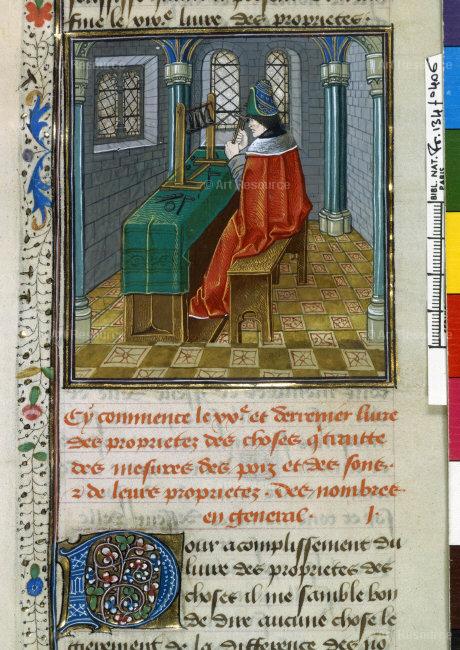 fine le xixe livre des proprietes:
Cy commence le xxe. et derrenier livre
des proprietez des choses q̄ traitte
des mesures des poiz et des sons.
⁊ de leurs proprietez. Des nombres
en general. I.
Pour acomplissement du
livre des proprietes des
choses il me samble bon
de dire aucune chose le
gierement de la difference des no
BIBL. NAT. Fr. 134 fo 406
PARIS
© Art Resource